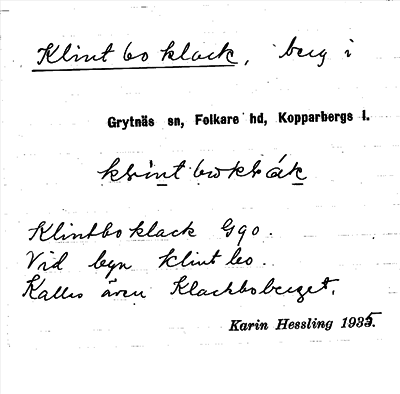 Klintboklack, berg i
Grytnäs sn, Folkare hd, Kopparbergs l.
Klintboklack Gqo.
Vid byn Klintbo.
Kallas även Klackboberget.
Karin Hessling 1935.